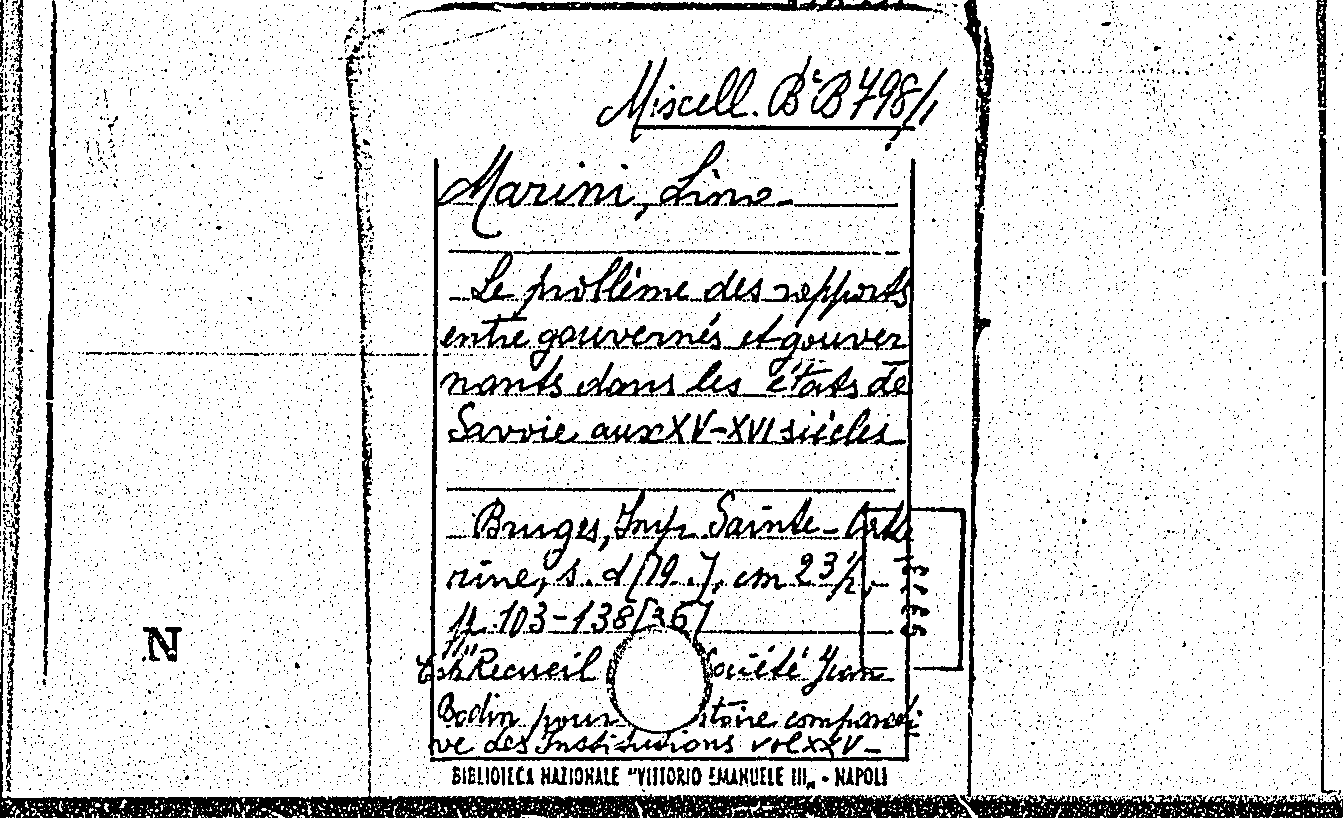 Miscell. B^c B 798/1
Marini, Lino-
Le problème des rapports
entre gouvernés et gouver
nants dans les états de
Savoie aux XV-XVI siècles
Bruges, Imp. Sainte-Cate
rine, s. d [19..], cm 23½,-
pp. 103-138 [36]
Recueil ociété Jean
Bodin pour stoire comparati
ve des Institutions vol XXV-
N
BIBLIOTECA NAZIONALE "VITTORIO EMANUELE III„ - NAPOLI